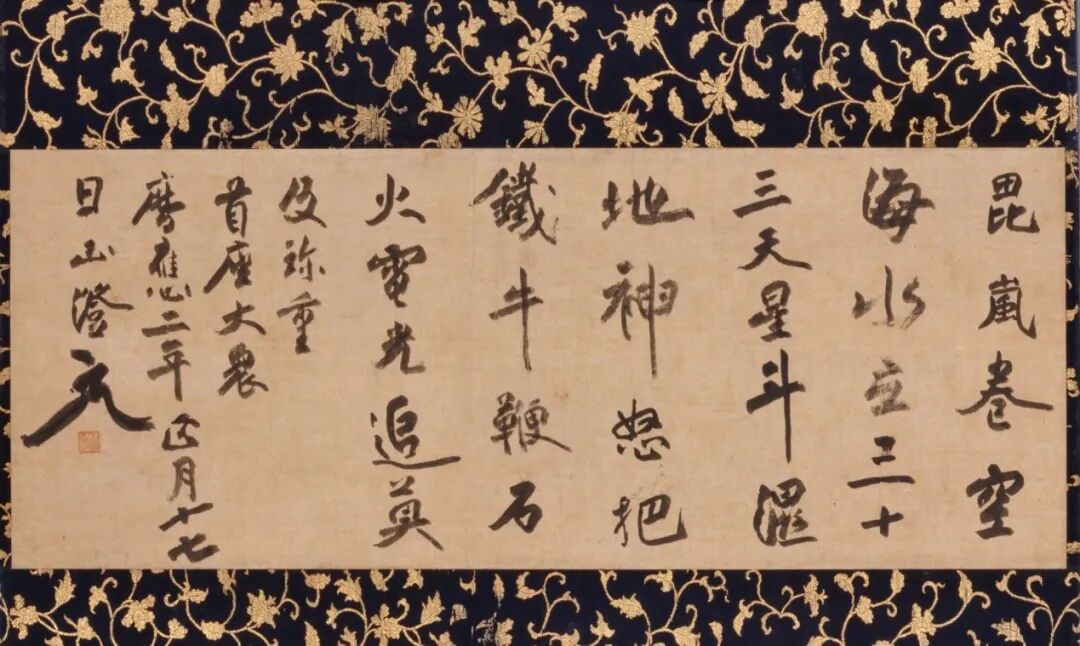 毘嵐卷空
海水立三十
三天星斗濕
地神怒把
鐵牛鞭石
火電光追莫
及珎重
首座大衆
曆應二年正月十七
日正澄